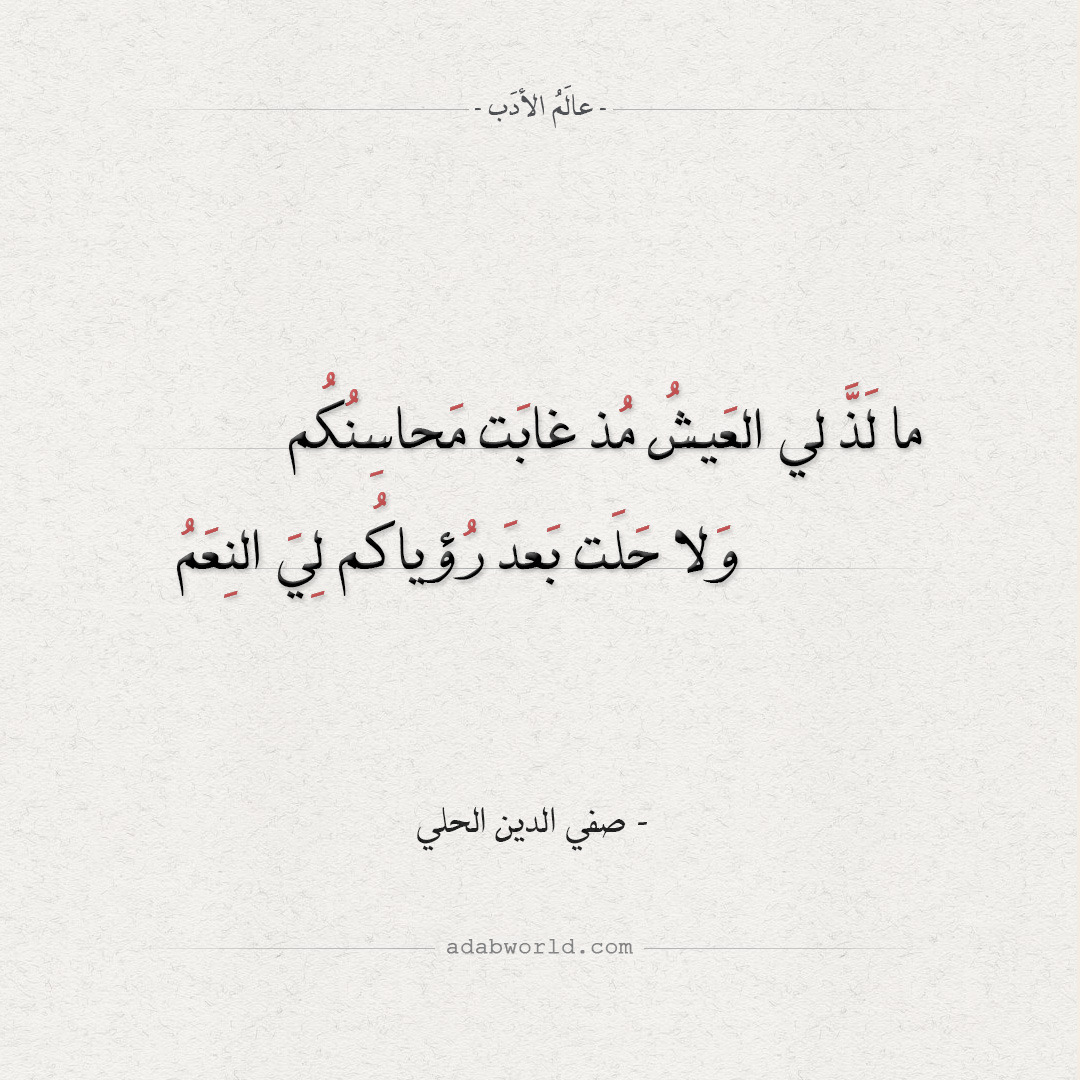 - عالَمُ الأدَب -
ما لَذَّ لي العَيشُ مُذ غابَت مَحاسِنُكُم
وَلا حَلَت بَعدَ رُؤياكُم لِيَ النِعَمُ
- صفي الدين الحلي
adabworld.com